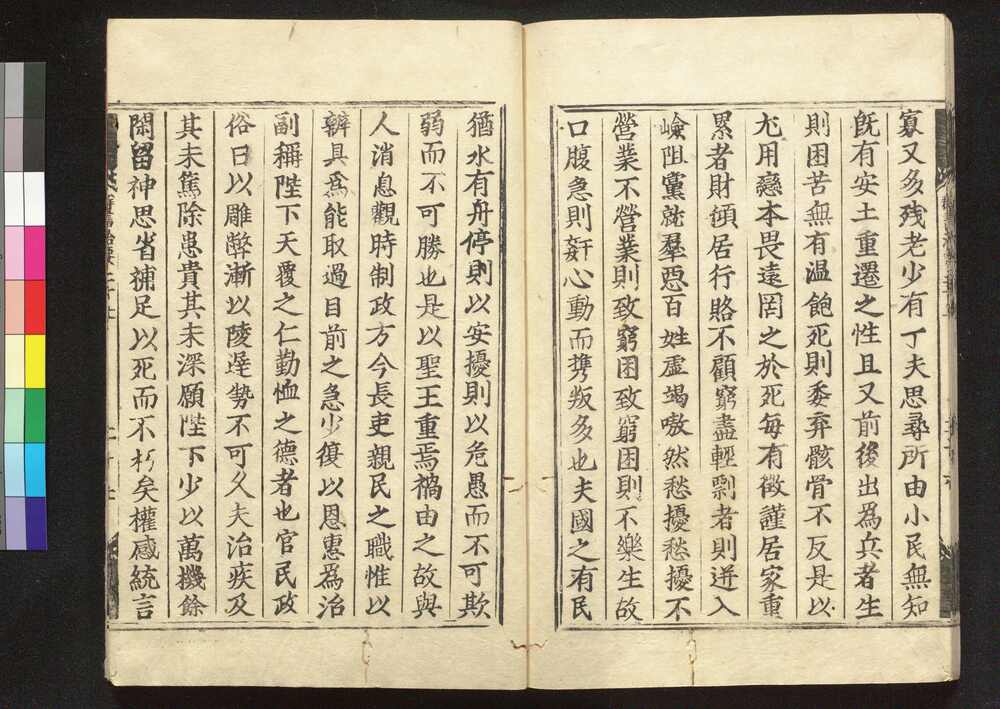 寡又多残老少有丁夫思尋所由小民無知
旣有安土重遷之性且又前後出為兵者生
則困苦無有温飽死則委弃骸骨不反是以
尤用戀本畏遠罔之於死每有徵謹居家重
累者財傾居行賂不顧窮盡輕剽者則迸入
嶮阻黨就羣惡百姓虛竭嗷然愁擾愁擾不
營業不營業則致窮困致窮困則不樂生故
口腹急則姧心動而攜叛多也夫國之有民
猶水有舟停則以安擾則以危愚而不可欺
弱而不可勝也是以聖王重焉禍由之故與
人消息觀時制政方今長吏親民之職惟以
辨具為能取過目前之急少復以恩惠為治
副稱陛下天覆之仁勤恤之德者也官民政
俗日以雕弊漸以陵遅勢不可久夫治疾及
其未篤除患貴其未深願陛下少以萬機餘
閑留神思省補足以死而不朽矣權感統言